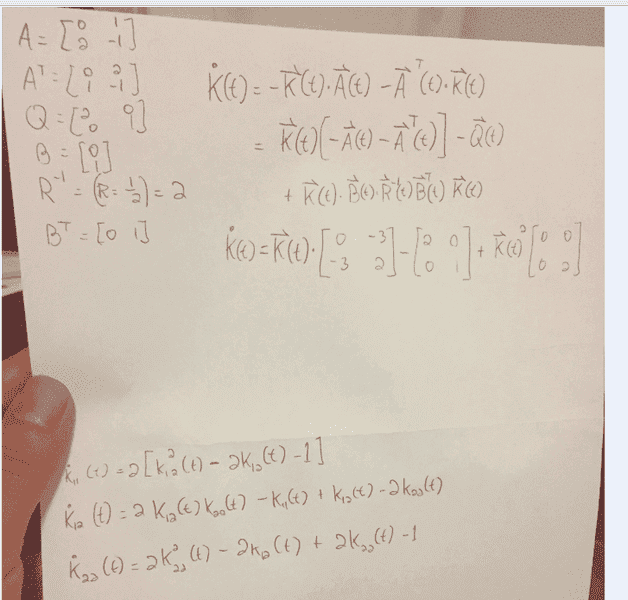 A = [0 1; 2 -1]
Aᵀ = [0 2; 1 -1]
Q = [2 0; 0 1]
B = [0; 1]
R⁻¹ = (R = 1/2) = 2
Bᵀ = [0 1]
K̇(t) = -K⃗(t)·A⃗(t) - A⃗ᵀ(t)·K⃗(t)
= K⃗(t)[-A⃗(t) - A⃗ᵀ(t)] - Q⃗(t)
+ K⃗(t)·B⃗(t)·R⃗⁻¹(t)B⃗ᵀ(t) K⃗(t)
K̇(t) = K⃗(t)·[0 -3; -3 2] - [2 0; 0 1] + K⃗(t)²[0 0; 0 2]
k̇₁₁(t) = 2[k₁₂²(t) - 2k₁₂(t) - 1]
k̇₁₂(t) = 2 k₁₂(t) k₂₂(t) - k₁₁(t) + k₁₂(t) - 2k₂₂(t)
k̇₂₂(t) = 2k₂₂²(t) - 2k₁₂(t) + 2k₂₂(t) - 1